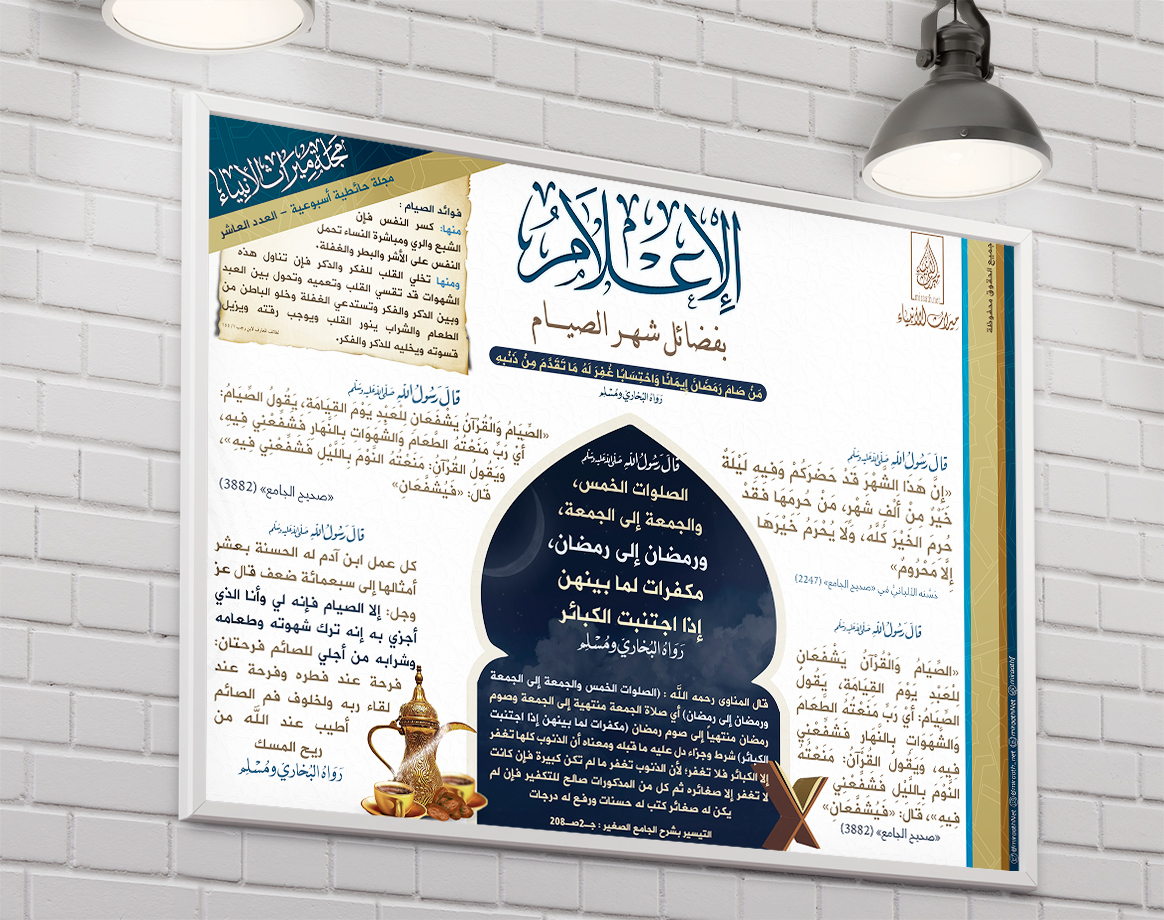 مجلة ميراث الأنبياء
مجلة حائطية أسبوعية - العدد العاشر
فوائد الصيام :
منها: كسر النفس فإن
الشبع والري ومباشرة النساء تحمل
النفس على الأشر والبطر والغفلة.
ومنها تخلي القلب للفكر والذكر فإن تناول هذه
الشهوات قد تقسي القلب وتعميه وتحول بين العبد
وبين الذكر والفكر وتستدعي الغفلة وخلو الباطن من
الطعام والشراب ينور القلب ويوجب رقته ويزيل
قسوته ويخليه للذكر والفكر.
الإعلام
بفضائل شهر الصيام
مَنْ صَامَ رَمَضَانَ إِيمَانًا وَاحْتِسَابًا غُفِرَ لَهُ مَا تَقَدَّمَ مِنْ ذَنْبِهِ
رَوَاهُ البُخَارِيُّ وَمُسْلِم
miraath.net
ميراث الأنبياء
جميع الحقوق محفوظة
قَالَ رَسُولُ اللهِ صَلَّى اللهُ عَلَيْهِ وَسَلَّمَ
«إِنَّ هَذَا الشَّهْرَ قَدْ حَضَرَكُمْ وَفِيهِ لَيْلَةٌ
خَيْرٌ مِنْ أَلْفِ شَهْرٍ، مَنْ حُرِمَهَا فَقَدْ
حُرِمَ الخَيْرَ كُلَّهُ، وَلَا يُحْرَمُ خَيْرَهَا
إِلَّا مَحْرُومٌ»
حَسَّنه الألبانيُّ في «صحيح الجامع» (2247)
قَالَ رَسُولُ اللهِ صَلَّى اللهُ عَلَيْهِ وَسَلَّمَ
«الصِّيَامُ وَالْقُرْآنُ يَشْفَعَانِ
لِلْعَبْدِ يَوْمَ القِيَامَةِ، يَقُولُ
الصِّيَامُ: أَيْ رَبِّ مَنَعْتُهُ الطَّعَامَ
وَالشَّهَوَاتِ بِالنَّهَارِ فَشَفِّعْنِي
فِيهِ، وَيَقُولُ القُرْآنُ: مَنَعْتُهُ
النَّوْمَ بِاللَّيْلِ فَشَفِّعْنِي
فِيهِ»، قَالَ: «فَيُشَفَّعَانِ»
«صحيح الجامع» (3882)
قَالَ رَسُولُ اللهِ صَلَّى اللهُ عَلَيْهِ وَسَلَّمَ
الصلوات الخمس،
والجمعة إلى الجمعة،
ورمضان إلى رمضان،
مكفرات لما بينهن
إذا اجتنبت الكبائر
رَوَاهُ البُخَارِيُّ وَمُسْلِم
قال المناوي رحمه اللَّه : (الصلوات الخمس والجمعة إلى الجمعة
ورمضان إلى رمضان) أي صلاة الجمعة منتهية إلى الجمعة وصوم
رمضان منتهياً إلى صوم رمضان (مكفرات لما بينهن إذا اجتنبت
الكبائر) شرط وجزاء دل عليه ما قبله ومعناه أن الذنوب كلها تغفر
إلا الكبائر فلا تغفر؛ لأن الذنوب تغفر ما لم تكن كبيرة فإن كانت
لا تغفر إلا صغائره ثم كل من المذكورات صالح للتكفير فإن لم
يكن له صغائر كتب له حسنات ورفع له درجات
التيسير بشرح الجامع الصغير : جـ2صـ208
قَالَ رَسُولُ اللهِ صَلَّى اللهُ عَلَيْهِ وَسَلَّمَ
«الصِّيَامُ وَالْقُرْآنُ يَشْفَعَانِ لِلْعَبْدِ يَوْمَ القِيَامَةِ، يَقُولُ الصِّيَامُ:
أَيْ رَبِّ مَنَعْتُهُ الطَّعَامَ وَالشَّهَوَاتِ بِالنَّهَارِ فَشَفِّعْنِي فِيهِ،
وَيَقُولُ القُرْآنُ: مَنَعْتُهُ النَّوْمَ بِاللَّيْلِ فَشَفِّعْنِي فِيهِ»،
قَالَ: «فَيُشَفَّعَانِ»
«صحيح الجامع» (3882)
قَالَ رَسُولُ اللهِ صَلَّى اللهُ عَلَيْهِ وَسَلَّمَ
كل عمل ابن آدم له الحسنة بعشر
أمثالها إلى سبعمائة ضعف قال عز
وجل: إلا الصيام فإنه لي وأنا الذي
أجزي به إنه ترك شهوته وطعامه
وشرابه من أجلي للصائم فرحتان:
فرحة عند فطره وفرحة عند
لقاء ربه ولخلوف فم الصائم
أطيب عند اللَّه من
ريح المسك
رَوَاهُ البُخَارِيُّ وَمُسْلِم